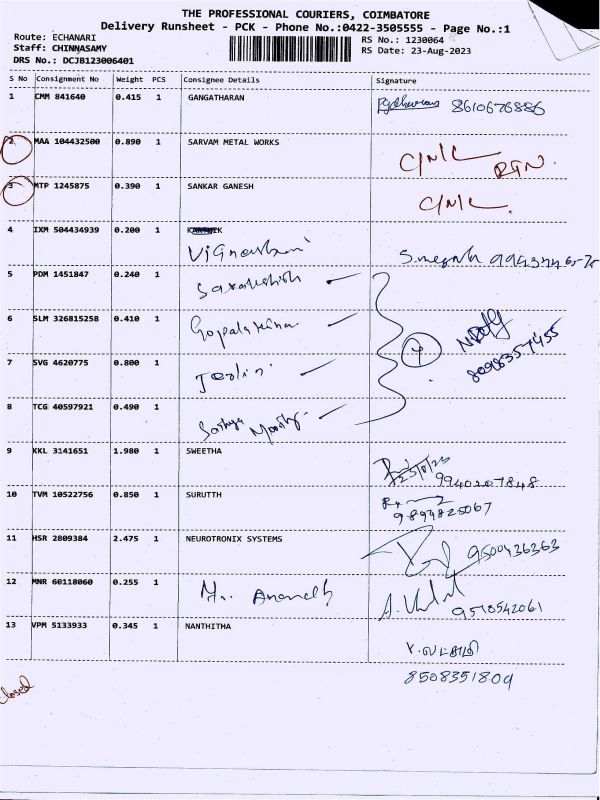 THE PROFESSIONAL COURIERS, COIMBATORE
Delivery Runsheet - PCK - Phone No.:0422-3505555 - Page No.:1
Route: ECHANARI
RS No.: 1230064
Staff: CHINNASAMY
RS Date: 23-Aug-2023
DRS No.: DCJB123006401
S No Consignment No Weight PCS Consignee Details Signature
1 CMM 841640 0.415 1 GANGATHARAN 8610676886
2 MAA 104432500 0.890 1 SARVAM METAL WORKS C/N/L RTN.
3 MTP 1245875 0.390 1 SANKAR GANESH C/N/L.
4 IXM 504434939 0.200 1
5 PDM 1451847 0.240 1
6 SLM 326815258 0.410 1 Gopalakrishna
7 SVG 4620775 0.800 1 8098357455
8 TCG 40597921 0.490 1 Sathya Moorthy
9 KKL 3141651 1.980 1 SWEETHA 23/8/23
9940207848
10 TVM 10522756 0.850 1 SURUTH
9894825067
11 HSR 2809384 2.475 1 NEUROTRONIX SYSTEMS 9500436363
12 MNR 60118060 0.255 1 Mr. Ananth
9518542061
13 VPM 5133933 0.345 1 NANTHITHA
8508351809
closed